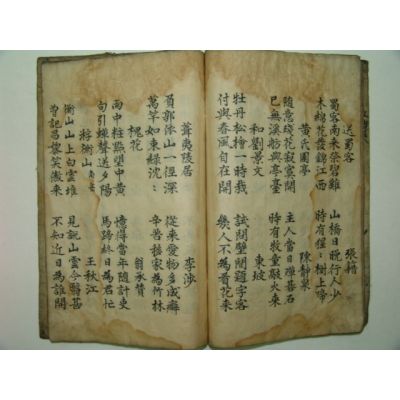 送蜀客 張籍
蜀客南來祭碧雞 山橋日晩行人少
木綿花發錦江西 時有猩〻樹上啼
黃氏園亭 陳靜泉
隨意殘花寂寞開 主人當日碁石
已無溪舫與亭臺 時有牧童敲火來
和劉景文 東坡
牡丹松檜一時栽 試問壁間題字客
付與春風自在開 幾人不爲看花來
葺夷陵居 李涉
負郭依山一徑深 從來愛物多成癖
萬竿如束綠沈〻 辛苦移家爲竹林
槐花 翁承贊
雨中粧點望中黃 憶得當年隨計吏
句引蟬聲送夕陽 馬蹄終日爲君忙
衡山 王秋江
衡山山上白雲堆 見說山雲今
曾記昌黎笑傲來 不知近日爲誰開